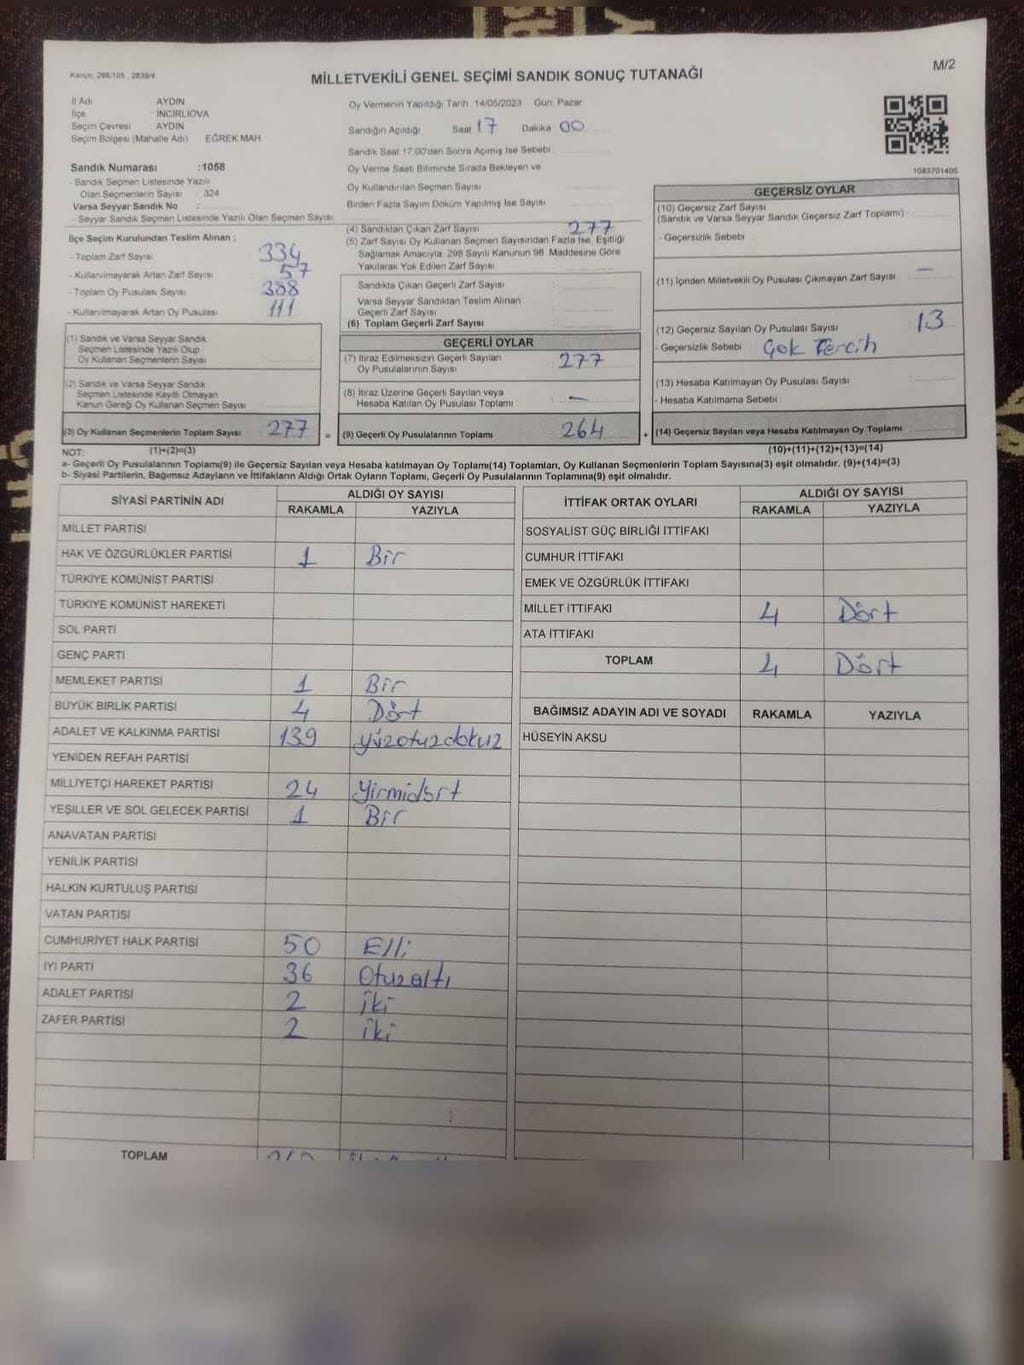 Kanun: 298/105 , 2839/4
MİLLETVEKİLİ GENEL SEÇİMİ SANDIK SONUÇ TUTANAĞI
M/2
İl Adı : AYDIN
İlçe : İNCİRLİOVA
Seçim Çevresi : AYDIN
Seçim Bölgesi (Mahalle Adı) : EĞREK MAH
Sandık Numarası :1058
- Sandık Seçmen Listesinde Yazılı
Olan Seçmenlerin Sayısı : 324
Varsa Seyyar Sandık No :
- Seyyar Sandık Seçmen Listesinde Yazılı Olan Seçmen Sayısı
Oy Vermenin Yapıldığı Tarih :14/05/2023 Gün: Pazar
Sandığın Açıldığı Saat 17 Dakika 00
Sandık Saat 17:00'den Sonra Açılmış İse Sebebi :
Oy Verme Saati Bitiminde Sırada Bekleyen ve
Oy Kullandırılan Seçmen Sayısı
Birden Fazla Sayım Döküm Yapılmış İse Sayısı
1083701405
İlçe Seçim Kurulundan Teslim Alınan ;
- Toplam Zarf Sayısı : 334
- Kullanılmayarak Artan Zarf Sayısı : 57
- Toplam Oy Pusulası Sayısı : 388
- Kullanılmayarak Artan Oy Pusulası : 111
(1) Sandık ve Varsa Seyyar Sandık
Seçmen Listesinde Yazılı Olup
Oy Kullanan Seçmenlerin Sayısı
(2) Sandık ve Varsa Seyyar Sandık
Seçmen Listesinde Kayıtlı Olmayan
Kanun Gereği Oy Kullanan Seçmen Sayısı
(3) Oy Kullanan Seçmenlerin Toplam Sayısı 277
(4) Sandıktan Çıkan Zarf Sayısı 277
(5) Zarf Sayısı Oy Kullanan Seçmen Sayısından Fazla İse, Eşitliği
Sağlamak Amacıyla, 298 Sayılı Kanunun 98. Maddesine Göre
Yakılarak Yok Edilen Zarf Sayısı
Sandıkta Çıkan Geçerli Zarf Sayısı
Varsa Seyyar Sandıktan Teslim Alınan
Geçerli Zarf Sayısı
(6) Toplam Geçerli Zarf Sayısı
GEÇERLİ OYLAR
(7) İtiraz Edilmeksizin Geçerli Sayılan
Oy Pusulalarının Sayısı 277
(8) İtiraz Üzerine Geçerli Sayılan veya
Hesaba Katılan Oy Pusulası Toplamı —
= (9) Geçerli Oy Pusulalarının Toplamı 264 +
GEÇERSİZ OYLAR
(10) Geçersiz Zarf Sayısı
(Sandık ve Varsa Seyyar Sandık Geçersiz Zarf Toplamı)
- Geçersizlik Sebebi :
(11) İçinden Milletvekili Oy Pusulası Çıkmayan Zarf Sayısı —
(12) Geçersiz Sayılan Oy Pusulası Sayısı 13
- Geçersizlik Sebebi : Çok Tercih
(13) Hesaba Katılmayan Oy Pusulası Sayısı
- Hesaba Katılmama Sebebi :
(14) Geçersiz Sayılan veya Hesaba Katılmayan Oy Toplamı
NOT: (1)+(2)=(3) (10)+(11)+(12)+(13)=(14)
a- Geçerli Oy Pusulalarının Toplamı(9) ile Geçersiz Sayılan veya Hesaba katılmayan Oy Toplamı(14) Toplamları, Oy Kullanan Seçmenlerin Toplam Sayısına(3) eşit olmalıdır. (9)+(14)=(3)
b- Siyasi Partilerin, Bağımsız Adayların ve İttifakların Aldığı Ortak Oyların Toplamı, Geçerli Oy Pusulalarının Toplamına(9) eşit olmalıdır.
SİYASİ PARTİNİN ADI ALDIĞI OY SAYISI
RAKAMLA YAZIYLA
MİLLET PARTİSİ
HAK VE ÖZGÜRLÜKLER PARTİSİ 1 Bir
TÜRKİYE KOMÜNİST PARTİSİ
TÜRKİYE KOMÜNİST HAREKETİ
SOL PARTİ
GENÇ PARTİ
MEMLEKET PARTİSİ 1 Bir
BÜYÜK BİRLİK PARTİSİ 4 Dört
ADALET VE KALKINMA PARTİSİ 139 yüzotuzdokuz
YENİDEN REFAH PARTİSİ
MİLLİYETÇİ HAREKET PARTİSİ 24 Yirmidört
YEŞİLLER VE SOL GELECEK PARTİSİ 1 Bir
ANAVATAN PARTİSİ
YENİLİK PARTİSİ
HALKIN KURTULUŞ PARTİSİ
VATAN PARTİSİ
CUMHURİYET HALK PARTİSİ 50 Elli
İYİ PARTİ 36 Otuzaltı
ADALET PARTİSİ 2 İki
ZAFER PARTİSİ 2 İki
TOPLAM
İTTİFAK ORTAK OYLARI ALDIĞI OY SAYISI
RAKAMLA YAZIYLA
SOSYALİST GÜÇ BİRLİĞİ İTTİFAKI
CUMHUR İTTİFAKI
EMEK VE ÖZGÜRLÜK İTTİFAKI
MİLLET İTTİFAKI 4 Dört
ATA İTTİFAKI
TOPLAM 4 Dört
BAĞIMSIZ ADAYIN ADI VE SOYADI RAKAMLA YAZIYLA
HÜSEYİN AKSU